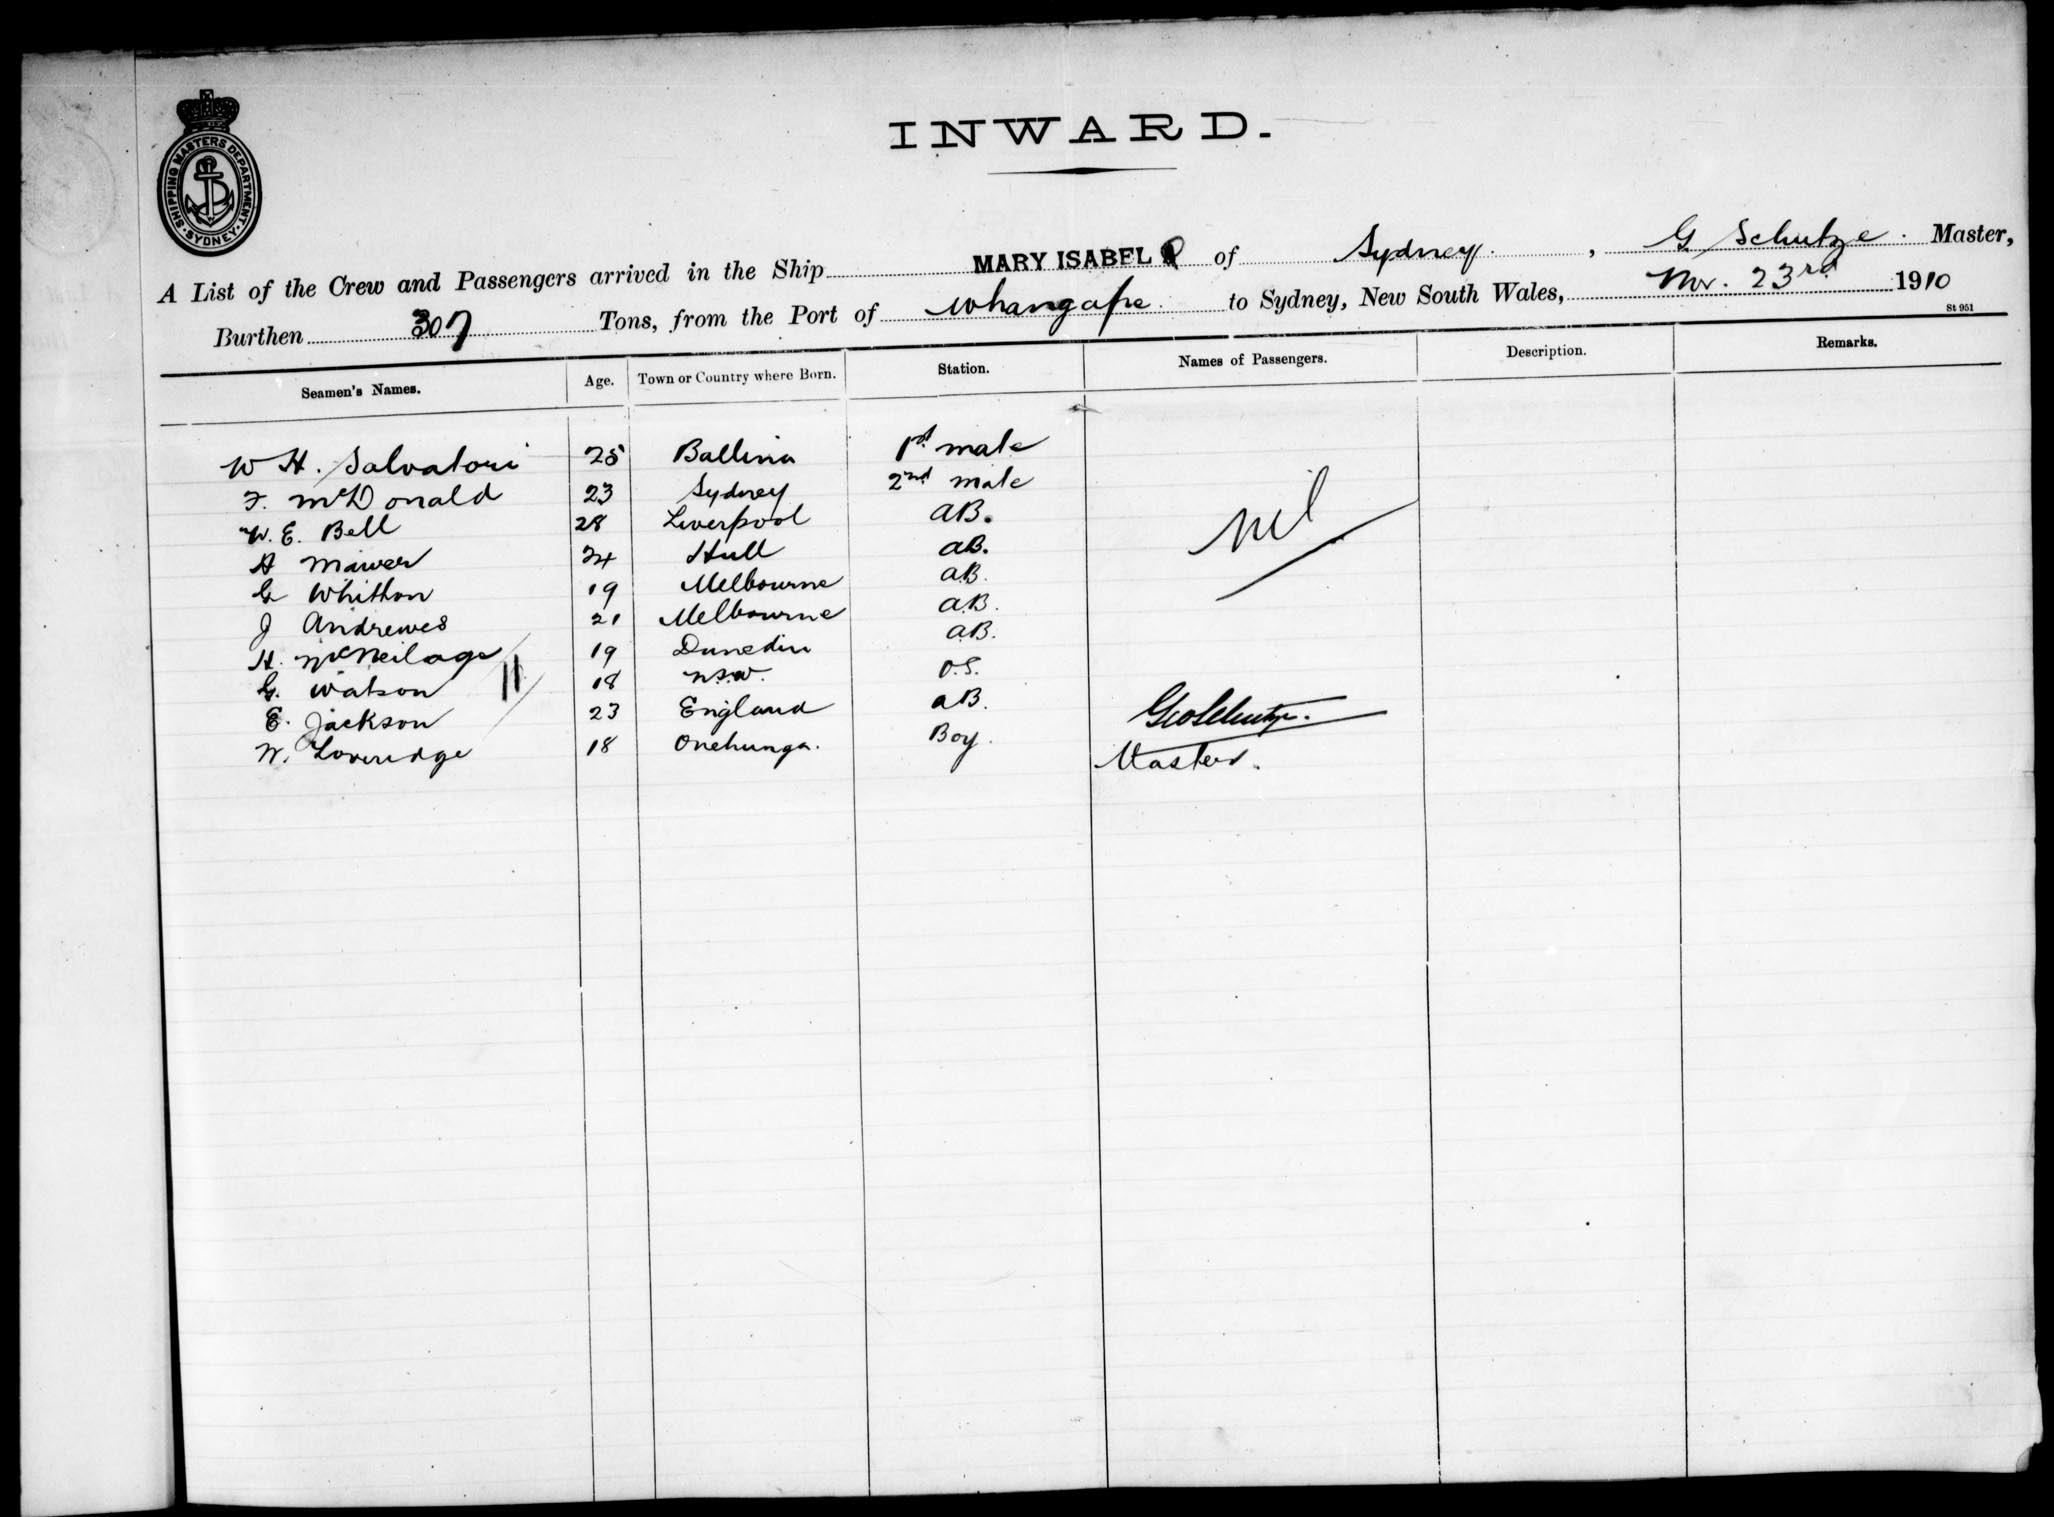 INWARD.
SHIPPING MASTERS DEPARTMENT. SYDNEY.
A List of the Crew and Passengers arrived in the Ship MARY ISABEL of Sydney, G Schutze. Master,
Burthen 307 Tons, from the Port of Whangape to Sydney, New South Wales, Nov. 23rd 1910
St 951
Seamen's Names. Age. Town or Country where Born. Station. Names of Passengers. Description. Remarks.
W H. Salvatori 25 Ballina 1st mate
F. McDonald 23 Sydney 2nd mate
W. E. Bell 28 Liverpool AB.
A Mawer 24 Hull AB.
nil
G Whitton 19 Melbourne AB.
J Andrewes 21 Melbourne AB.
H. McNeilage 19 Dunedin AB.
G. Watson 11 18 NSW. O.S.
E. Jackson 23 England AB. Geo Schutze.
W. Loveridge 18 Onehunga. Boy. Master.